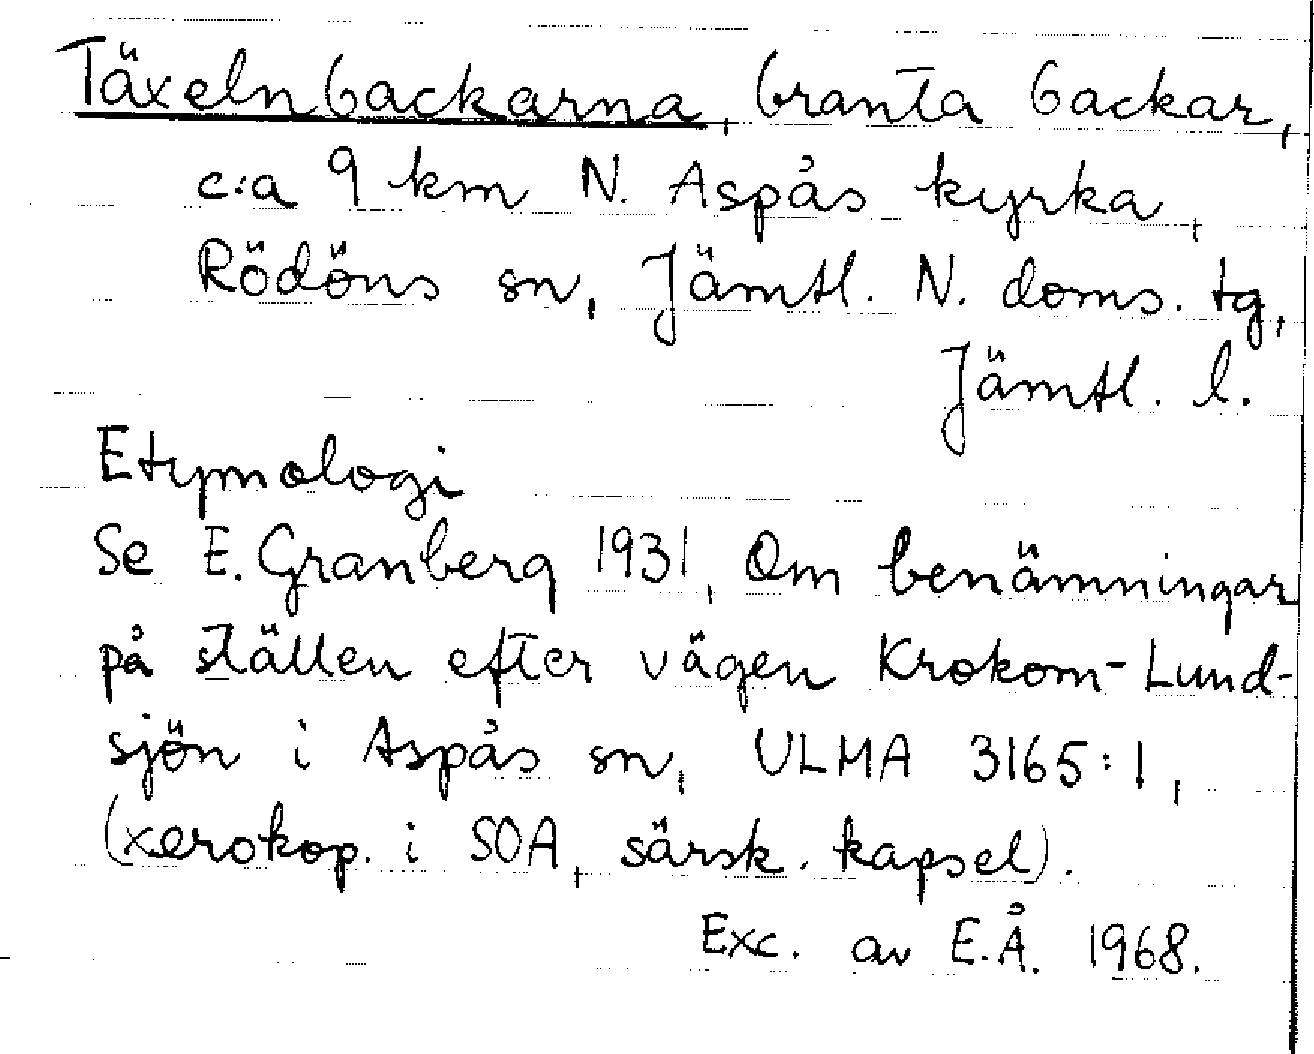 Täxelnbackarna, branta backar,
c:a 9 km N. Aspås kyrka,
Rödöns sn, Jämtl. N. doms. tg,
Jämtl. l.
Etymologi
Se E. Granberg 1931, Om benämningar
på ställen efter vägen Krokom-Lund-
sjön i Aspås sn, ULMA 3165:1,
(xerokop. i SOA, särsk. kapsel).
Exc. av E.Å. 1968.